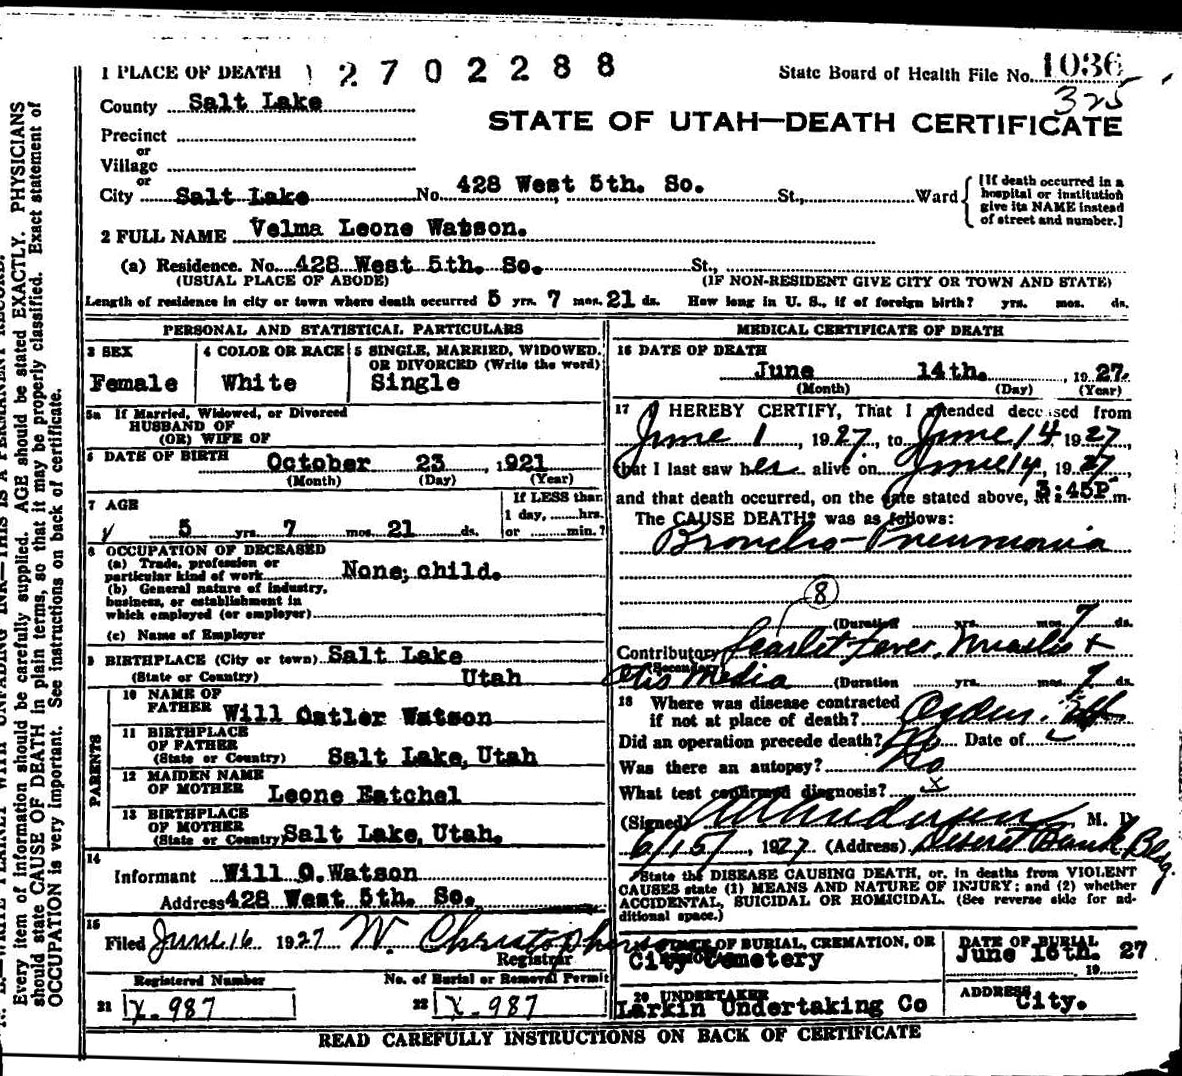 1 PLACE OF DEATH 12702288 State Board of Health File No. 1036
325
County Salt Lake
STATE OF UTAH—DEATH CERTIFICATE
Precinct
or
Village
or
City Salt Lake No. 428 West 5th. So. St., Ward
[If death occurred in a
hospital or institution
give its NAME instead
of street and number.]
2 FULL NAME Velma Leone Watson.
(a) Residence. No. 428 West 5th. So. St.,
(USUAL PLACE OF ABODE) (IF NON-RESIDENT GIVE CITY OR TOWN AND STATE)
Length of residence in city or town where death occurred 5 yrs. 7 mos. 21 ds. How long in U. S., if of foreign birth? yrs. mos. ds.
PERSONAL AND STATISTICAL PARTICULARS
3 SEX
Female
4 COLOR OR RACE
White
5 SINGLE, MARRIED, WIDOWED,
OR DIVORCED (Write the word)
Single
5a If Married, Widowed, or Divorced
HUSBAND OF
(OR) WIFE OF
6 DATE OF BIRTH October 23, 1921
(Month) (Day) (Year)
7 AGE
5 yrs. 7 mos. 21 ds.
If LESS than
1 day, hrs.
or min.?
8 OCCUPATION OF DECEASED
(a) Trade, profession or
particular kind of work None; child.
(b) General nature of industry,
business, or establishment in
which employed (or employer)
(c) Name of Employer
9 BIRTHPLACE (City or town) Salt Lake
(State or Country) Utah
PARENTS
10 NAME OF
FATHER Will Ostler Watson
11 BIRTHPLACE
OF FATHER
(State or Country) Salt Lake, Utah
12 MAIDEN NAME
OF MOTHER Leone Eatchel
13 BIRTHPLACE
OF MOTHER
(State or Country) Salt Lake, Utah.
14
Informant Will O. Watson
Address 428 West 5th. So.
15
Filed June 16 1927 W. Christopherson
Registrar
Registered Number
21 X-987
No. of Burial or Removal Permit
22 X-987
MEDICAL CERTIFICATE OF DEATH
16 DATE OF DEATH
June 14th., 1927.
(Month) (Day) (Year)
17 I HEREBY CERTIFY, That I attended deceased from
June 1, 1927, to June 14 1927,
that I last saw her alive on June 14, 1927
and that death occurred, on the date stated above, at 3:45P m.
The CAUSE DEATH* was as follows:
Broncho-Pneumonia
8
(Duration yrs. mos. 7 ds.
Contributory Scarlet Fever, Measles +
(Secondary)
Otis Media (Duration yrs. mos. 7 ds.
18 Where was disease contracted
if not at place of death? Ogden.
Did an operation precede death? No Date of
Was there an autopsy? No
What test confirmed diagnosis? x
(Signed) Anderson M. D.
6/15, 1927 (Address) Deseret Bank Bldg.
State the DISEASE CAUSING DEATH, or, in deaths from VIOLENT
CAUSES state (1) MEANS AND NATURE OF INJURY; and (2) whether
ACCIDENTAL, SUICIDAL OR HOMICIDAL. (See reverse side for ad-
ditional space.)
PLACE OF BURIAL, CREMATION, OR
REMOVAL
City Cemetery
DATE OF BURIAL
June 16th. 27
19
20 UNDERTAKER
Larkin Undertaking Co
ADDRESS
City.
READ CAREFULLY INSTRUCTIONS ON BACK OF CERTIFICATE
Every item of information should be carefully supplied. AGE should be stated EXACTLY. PHYSICIANS
should state CAUSE OF DEATH in plain terms, so that it may be properly classified. Exact statement of
OCCUPATION is very important. See instructions on back of certificate.